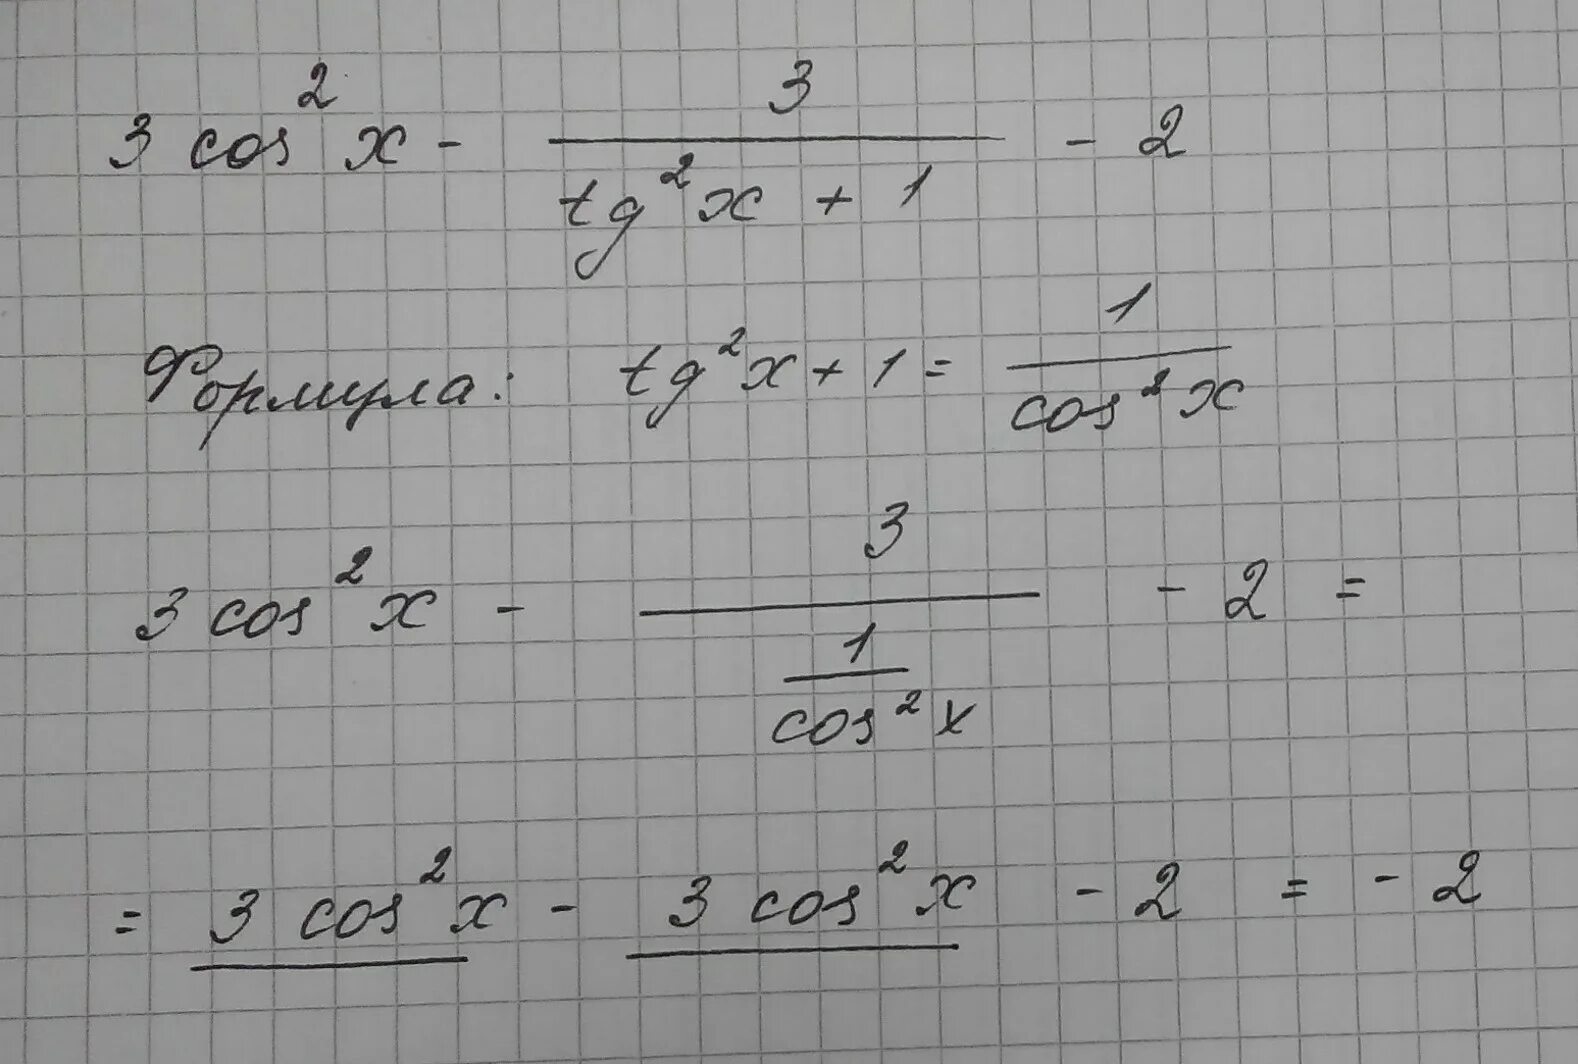 3 cos² x - 3 / (tg² x + 1) - 2
Формула: tg² x + 1 = 1 / cos² x
3 cos² x - 3 / (1 / cos² x) - 2 =
= 3 cos² x - 3 cos² x - 2 = - 2